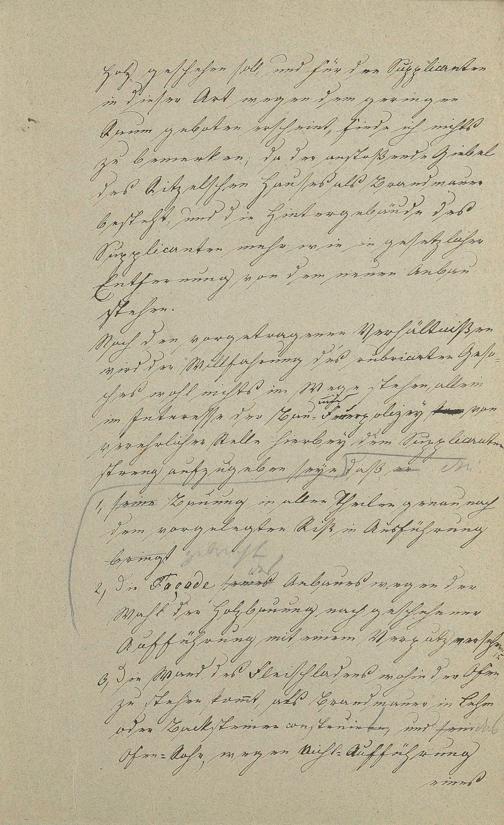 Holz geschehen soll, und für den Supplicanten
in dieser Art wegen dem geringen
Raum geboten erscheint, finde ich nichts
zu bemerken, da der anstoßende Giebel
des Ritzelschen Hauses als Brandmauer
besteht, und die Hintergebäude des
Supplicanten mehr wie in gesetzlicher
Entfernung von dem neuen Anbau
stehen.
Nach den vorgetragenen Verhältnißen
wird der Willfahrung des rubricirten Gesu-
ches wohl nichts im Wege stehen, allein
im Interesse der Bau- und Feuerpolizey von
verehrlicher Stelle hierbey dem Supplicanten
streng aufzugeben seye, daß er
1, seine Bauung in allen Theilen genau nach
dem vorgelegten Riß in Ausführung
bringt gebracht
2, die Façade Anbaues wegen der
Wahl der Holzbauung nach geschehener
Aufführung mit einem Verputz versehen
3, die Wand des Fleischladens wohin der Ofen
zu stehen kommt, als Brandmauer in Lehm
oder Backsteinen construirt, und das
Ofen-Rohr, wegen Nicht-Aufführung
eines